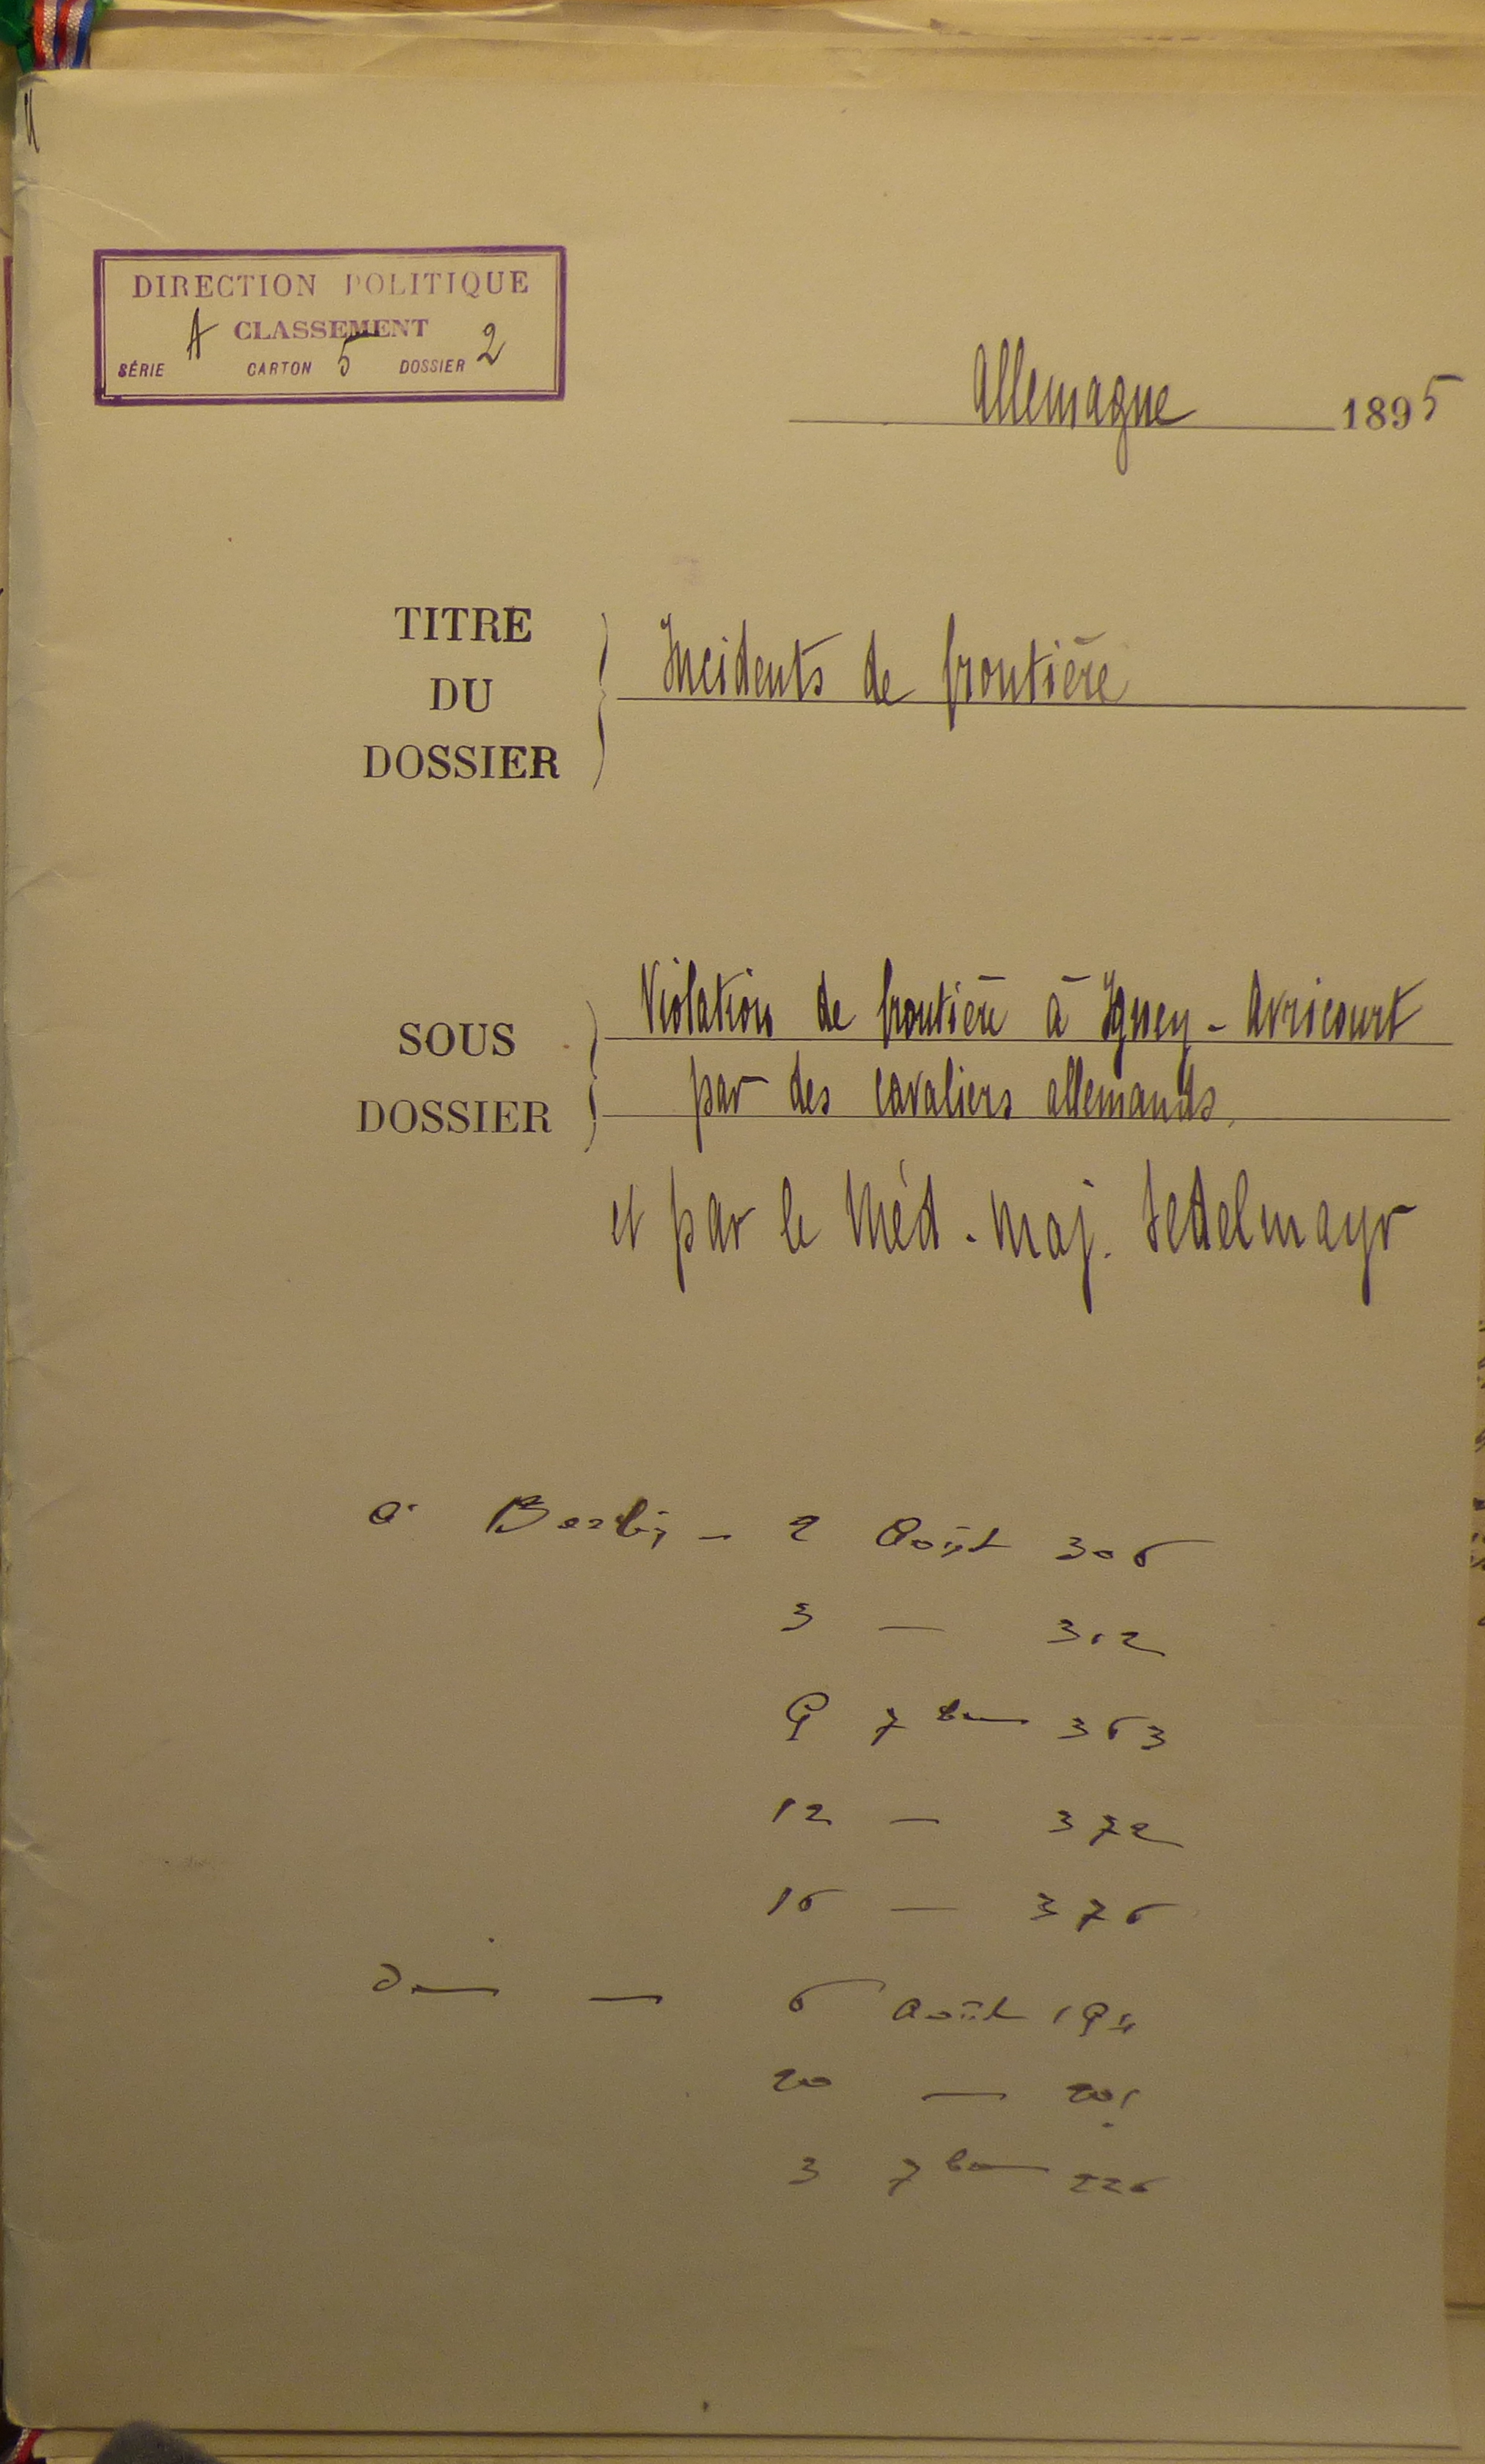 DIRECTION POLITIQUE
CLASSEMENT
SÉRIE A CARTON 5 DOSSIER 2
Allemagne 1895
TITRE
DU
DOSSIER
Incidents de frontière
SOUS
DOSSIER
Violation de frontière à Igney - Avricourt
par des cavaliers allemands.
et par le Méd. Maj. Sedelmayr
à Berlin - 2 Août 306
3 — 312
9 7bre 363
12 — 372
16 — 376
— 6 Août
20 — 201
3 7bre 226